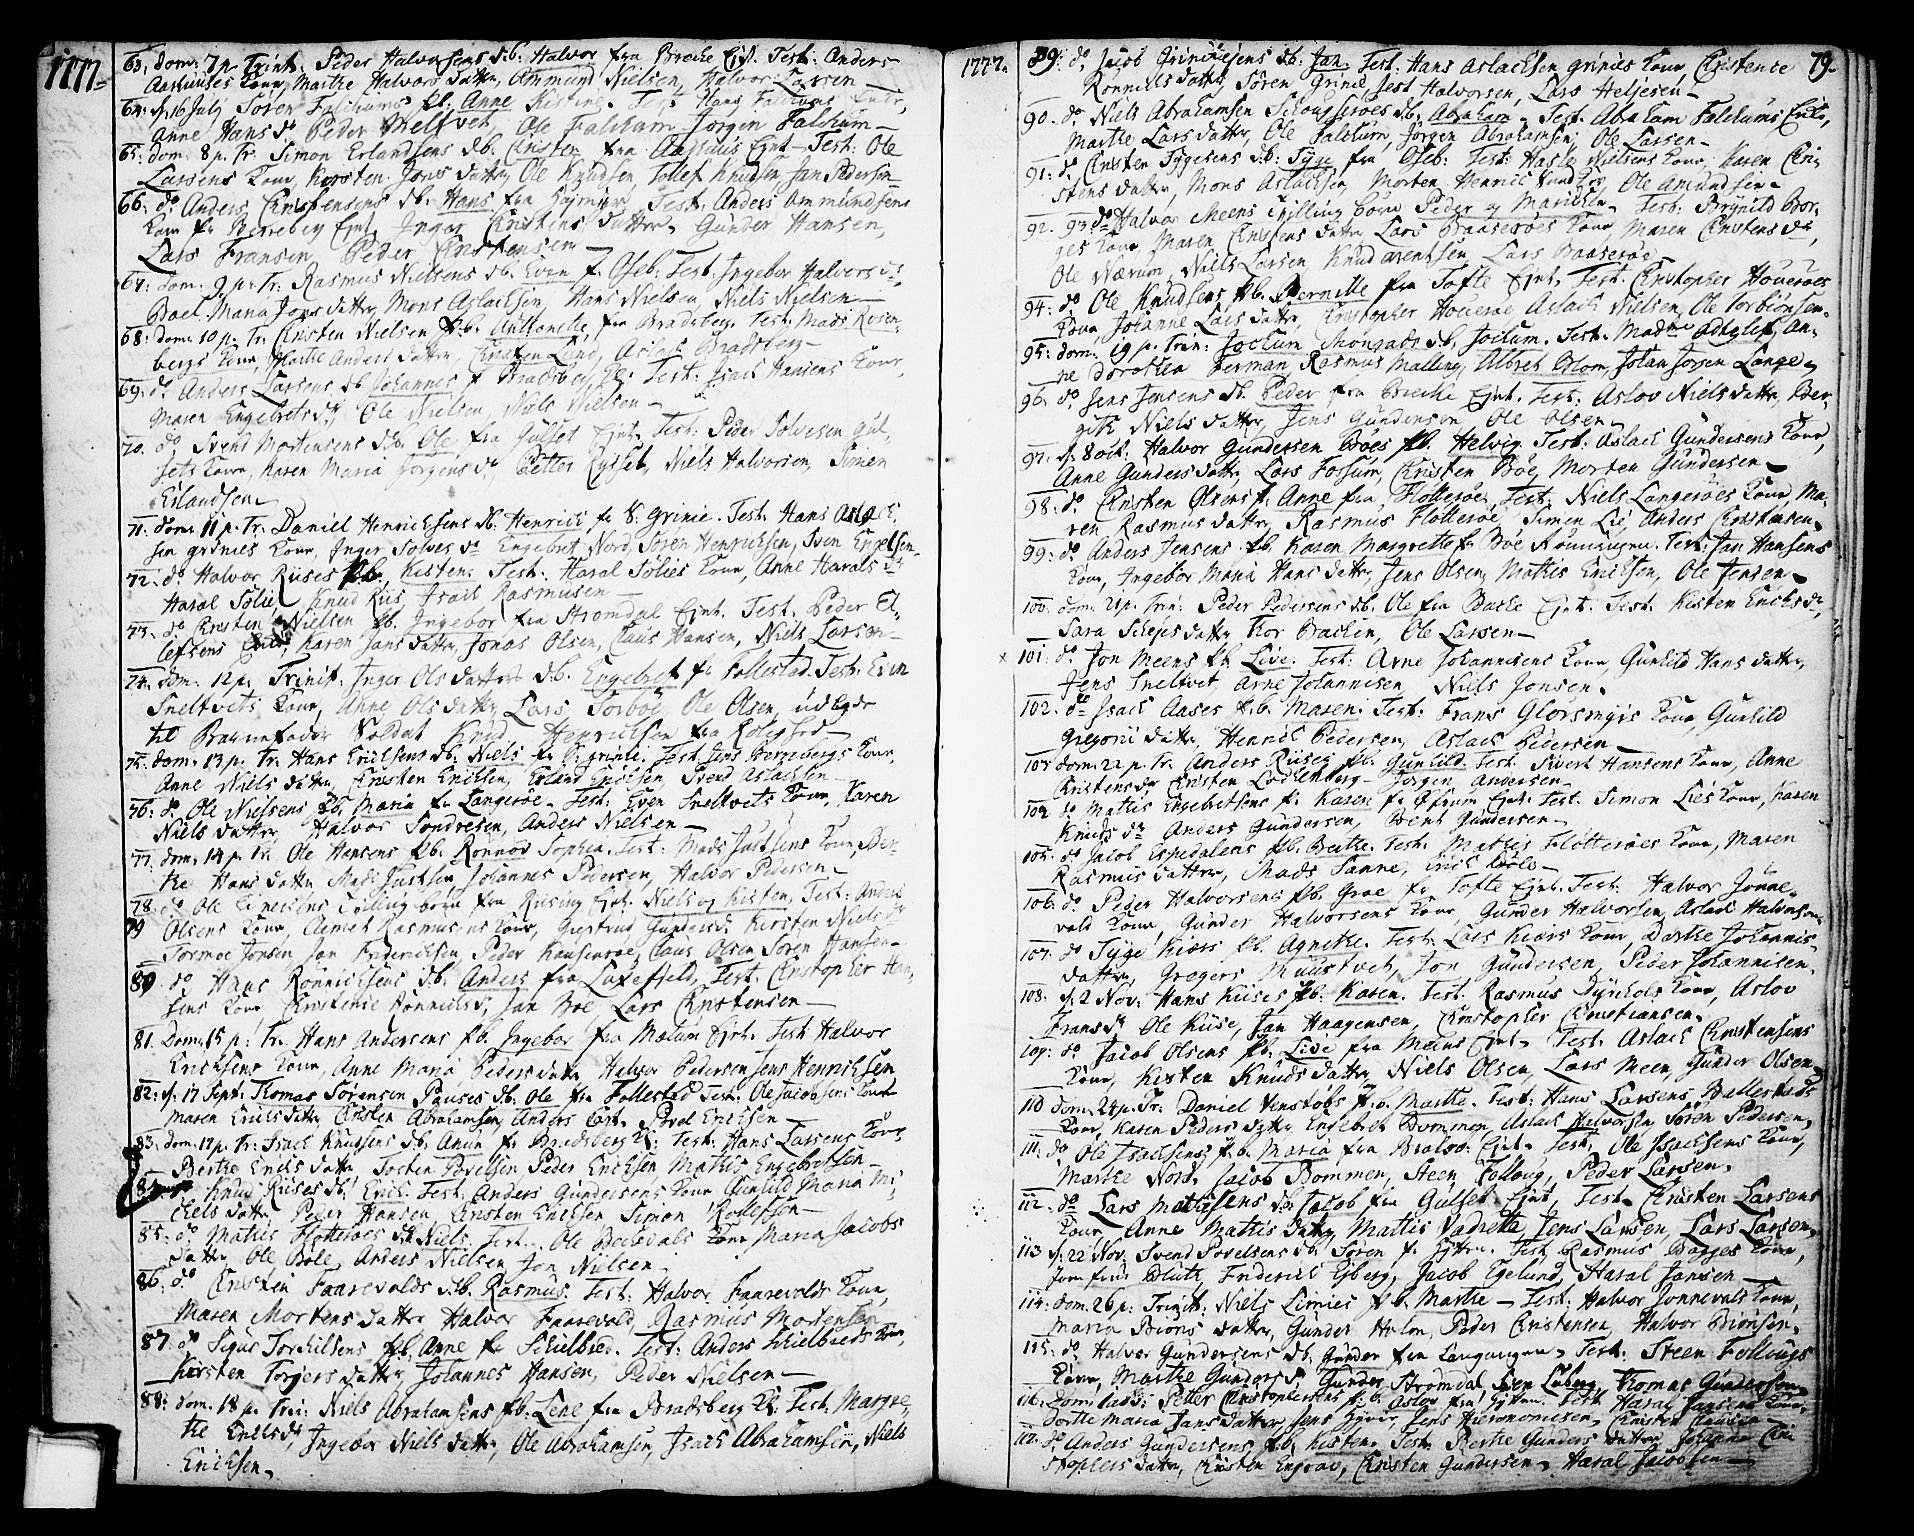 1777.
63. dom: 7 p. Trinit. Peder Halvorsens d.b. Halvor fra Breche Ejd. Test: Anders
Aashuuses Kone, Marthe Halvors datter, Ammund Nielsen, Halvor Larsen
64. f. 16 July Søren Falchums f.b. Anne Kistine. Test: Hans Falchums Enke,
Anne Hans dr Peder Melfvet, Ole Falchum Jørgen Falchum
65. dom: 8 p. Tr. Simon Erlandsens d.b. Cristen fra Aashuus Ejnt. Test: Ole
Larsens Kone, Kirsten Jons datter, Ole Knudsen, Tollef Knudsen Jan Pedersen
66. do Anders Christensens d.b. Hans fra Højmyr. Test: Anders Ammundsens
Kone fr Berreberg Ejnt, Inger Cristens datter, Gunder Hansen,
Lars Fransen, Peder Cristensen
67. dom. 9 p. Tr. Rasmus Nielsens d.b. Even f. Oseb. Test. Ingebor Halvors dr,
Boel Maria Jons datter, Mons Aslachsen, Hans Nielsen, Niels Nielsen
68. dom: 10 p. Tr. Cristen Nielsen f.b. Anthonette fra Bradsberg. Test: Mads Rosen-
bergs Kone, Marthe Anders datter, Cristen Lund, Aslac Bradsberg
69. do Anders Larsens d.b. Johannes f Bradsberg Kl: Test: Isach Hansens Kone,
Maren Engebrets dr, Ole Nielsen, Niels Nielsen
70. do Svend Mortensens d.b. Ole fra Gulset Ejnt. Test: Peder Solvesen Gul-
sets Kone, Karen Maria Jørgens dr, Petter Rysset, Niels Halvorsen, Simen
Erlandsen
71. dom: 11 p. Tr. Daniel Henrichsens d.b. Henrich fr S. Grinie. Test: Hans Aslach-
sen Grinies Kone, Inger Solves dr Engebret Nord, Søren Henrichsen, Sven Engelsen
72. do Halvor Riises f.b. Kisten: Test. Haral Solies Kone, Anne Harals dr
Haral Solie, Knud Riis Isach Rasmusen
73. do Cristen Nielsen f.b. Ingebor fra Strømdal Ejnt. Test. Peder El-
lefsens Enke, Karen Jans datter, Jonas Olsen, Claus Hansen, Niels Larsen
74. dom. 12 p. Trinit: Inger Ols datters d.b. Engebret fr Follestad. Test: Even
Sneltvets Kone, Anne Ols datter, Lars Torboe, Ole Olsen, udlagde
til Barnefader Soldat Knud Henrichsen fra Rolighed
75. dom: 13 p. Tr. Hans Erichsens d.b. Niels fr S. Grinie. Test Jens Berrebergs Kone,
Anne Niels datter, Cristen Erichsen, Erland Erichsen Svend Aslachsen
76. do Ole Nielsens f.b. Maria fr Langerøe. Test: Even Sneltvets Kone, Karen
Niels datter, Halvor Sondresen, Anders Nielsen
77. dom: 14 p. Tr. Ole Hansens f.b. Ronnov Sophia. Test: Mads Justsens Kone, Ber-
the Hans datter Mads Justsen Johannes Pedersen, Halvor Pedersen
78. do Ole Einersens Tvilling børn fra Riising Ejnt. Niels og Kisten, Test: Anders
79 Olsens Kone, Clemet Rasmusens Kone, Giertrud Gunders dr Kirsten Niels dr
Tormoe Jonsen Jan Friderichsen Peder Hansen, Claus Olsen Søren Hansen
80 do Hans Ronnichsens d.b. Anders fra Luxefjeld, Test: Cristopher Han-
sens Kone Cristense Ronnichs dr Jan Boe Lars Christensen
81. Dom: 15 p: Tr. Hans Andersens f.b. Ingebor fra Mælum Ejnt. Test Halvor
Erichsens Kone, Anne Maria Peders datter Halvor Pedersen Jens Henrichsen
82: f. 17 Sept: Thomas Sørensen Pauses d.b. Ole fra Follestad Test: Ole Jacobsens Kone
Maren Erichs datter Cristen Abrahamsen Anders Povel Erichsen
83: dom: 17 p. Tr: Isach Knudsens d.b. Amun fr Bradsberg Kl: Test: Hans Larsens Kone,
Berthe Erichs datter Josten Povelsen Peder Erichsen Mathis Engebretsen
84 Knud Riises d.b. Erich. Test. Anders Gundersens Kone Gunhild Maria Mi-
chels datter Peder Hansen Cristen Erichsen Simon Rollefsen
85: do Mathis Flotterøes d.b. Niels, Test. Ole Boledals Kone Maria Jacobs
datter Ole Bøle, Anders Nielsen Jon Nielsen
86. do Cristen Faarevalds d.b. Rasmus. Test: Halvor Faarevalds Kone,
Maren Mortens datter Halvor Faarevald, Rasmus Mortensen
87. do Sigur Torchilsens f.b. Anne fr Schilbred. Test: Anders Schilbreds Kone,
Kirsten Torjers datter, Johannes Hansen, Peder Nielsen
88: dom: 18 p. Tri: Niels Abrahamsens f.b. Lene fra Bradsberg Kl. Test: Margre-
the Erichs dr, Ingebor Niels datter, Ole Abrahamsen, Isach Abrahamsen, Niels
Erichsen
1777. 79.
89: do Jacob Griniesens d.b. Jan. Test: Hans Aslachsen Grinies Kone, Cristence
Ronnichs datter, Søren Grinie Jest Halvorsen, Lars Heljesen
90. do Niels Abrahamsen Schougerøes d.b. Abraham. Test. Abraham Falchums Enke,
Marthe Lars datter, Ole Falchum, Jørgen Abrahamsen, Ole Larsen
91: do Cristen Tygesens d.b. Tyge fra Oseb: Test: Hasle Nielsens Kone, Karen Cri-
stens datter, Mons Aslachsen, Morten Henrichsen, Ole Amundsen
92. 93 do Halvor Meens Tvilling børn Peder og Marichen. Test: Brynild Bor-
ges Kone, Maren Cristens datter Lars Baaserøes Kone Maren Cristens dr,
Ole Nærum, Niels Larsen Knud Arentsen Lars Baaserøe
94. do Ole Knudsens f.b. Pernille fra Tofte Ejnt. Test. Cristopher Houerøes
Kone Johanne Lars datter, Cristopher Houerøe Aslach Nielsen, Ole Torbionsen
95: dom. 19 p. Trin: Jochum Chongads d.b. Jochum. Test. Madme Adtzlef, An-
ne Dorothea Herman Rasmus Malling, Albret Blom, Johan Jørgen Lange
96. do Jens Jensens d.b. Peder fra Breche Ejnt. Test: Aslov Niels datter, Ber-
gith Niels datter, Jens Gundersen Ole Olsen
97. f. 8 oct. Halvor Gundersen Boes f.b. Helvig. Test: Aslach Gundersens Kone,
Anne Gunders datter, Lars Fossum, Cristen Bøe, Morten Gundersen
98. do Cristen Oxens f. Anne fra Flotterøe. Test: Niels Langerøes Kone, Ma-
ren Rasmus datter, Rasmus Flotterøe, Simen Lie, Anders Cristensen
99: do Anders Jensens f.b. Karen Margrethe fr Bøe. Test: Jan Hansens
Kone, Ingebor Maria Hans datter, Jens Olsen, Mathis Erichsen, Ole Jensen
100. dom. 21 p. Trin: Peder Pedersens d.b. Ole fra Bache Ejnt. Test. Kisten Erichs dr
Sara Schejes datter Thor Bachen, Ole Larsen
101. do Jon Meens f.b. Live. Test: Arne Johannesens Kone, Gunhild Hans datter,
Jens Sneltvet, Arne Johannesen Niels Jonsen
102. do Isach Aases f.b. Maren. Test: Frans Glosmyrs Kone, Gunhild
Gregori datter, Henrich Pedersen, Aslach Pedersen
103 dom. 22 p. Tr. Anders Riises f.b. Gunhild. Test: Sivert Hansens Kone, Anne
Cristens dr Cristen Jørgen Andersen
104 do Mathis Engebretsens f. Karen fr Ofrum Ejnt. Test: Simon Lies Kone, Karen
Knuds dr Anders Gundersen, Bent Gundersen
105. do Jacob Espedalens f.b. Berthe. Test: Mathis Flotterøes Kone, Maren
Rasmus datter, Mads Sanne, Erich
106. do Peder Halvorsens f.b. Groe fr Tofte Ejnt. Test: Halvor Jonne-
vald Kone, Gunder Halvorsens Kone, Gunder Halvorsen, Aslach Halvorsen
107. do Tyge Kiærs f.b. Agnethe. Test: Lars Kiærs Kone, Dorthe Johannis
datter, Gregers Jon Gundersen, Peder Johannesen
108. f. 2 Nov: Hans Riises f.b. Karen. Test. Rasmus Dynhols Kone, Aslov
Frans dr Ole Riise, Jan Haagensen, Cristopher Cristiansen
109: do Jacob Olsens f.b. Live fra Meens Ejnt. Test. Aslach Cristensens
Kone, Kisten Knuds datter, Niels Olsen, Lars Meen, Gunder Olsen
110 dom: 24 p. Tr: Daniel Venstøbs f.b. Marthe. Test: Hans Larsens, Ballestads
Kone, Karen Peders datter Engebret Bommen, Aslach Halvorsen Søren Pedersen
111. do Ole Isachsens f.b. Maria fra Bralvo: Ejnt. Test. Ole Isachsens Kone,
Marthe Nord, Jacob Bommen, Steen Follaug, Peder Larsen
112. do Lars Mathisens d.b. Jacob fra Gulset Ejnt, Test. Cristen Larsens
Kone, Anne Mathis datter, Mathis Vadrette Jens Larsen, Lars Larsen
113 f. 22 Nov. Svend Povelsens d.b. Søren fr Gjtrn. Test. Rasmus Bagges Kone,
Jomfrue Blüth, Friderich Ejberg, Jacob Egelund, Haral Jansen
114: dom. 26 p: Trinit: Niels Limies f.b. Marthe. Test: Halvor Jonnevals Kone,
Maria Bions datter, Gunder Hulon, Peder Cristensen Halvor Bionsen
115: do Halvor Gundersens d.b. Gunder fra Langangen. Test: Steen Follaugs
Kone, Marthe Gunders dr Gunder Strømdal, Sven Luberg, Thomas Gundersen
116. Dom: 1 adv: Petter Christophersens f.b. Aslov fra Gjtrn. Test Haral Jansens Kone,
Dorthe Maria Jans datter, Jens Jens Hieronomisen, Cristen Clausen
117. do Anders Gundersens f.b. Kisten. Test. Berthe Gunders datter Johanne Cri-
stophers datter, Cristen Engrav, Cristen Gundersen, Haral Jacobsen